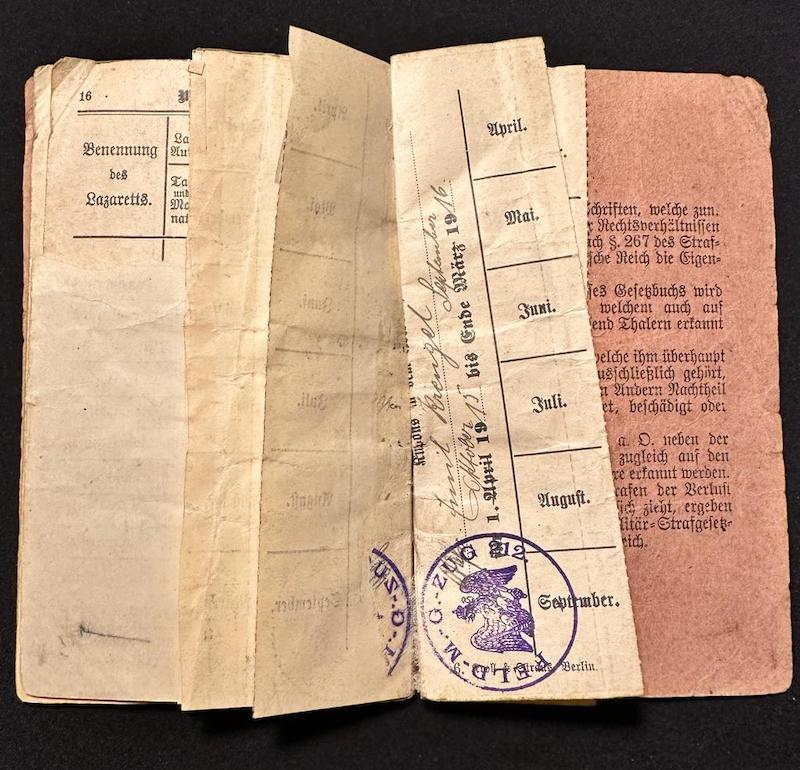 16
Benennung
des
Lazaretts.
La
Au
Ta
und
Mo
nat
April.
Mai.
Juni.
Juli.
August.
September.
Emil Krenzel
Oktober 15 September
1. April 19 bis Ende März 1916.
FELD-M.-G.-ZUG 212.
Berlin.
chriften, welche zun.
r Rechtsverhältnissen
ach §. 267 des Straf-
sche Reich die Eigen-
ses Gesetzbuchs wird
welchem auch auf
end Thalern erkannt
welche ihm überhaupt
usschließlich gehört,
n Andern Nachtheil
et, beschädigt oder
a. O. neben der
zugleich auf den
re erkannt werden.
rafen der Verlust
sich zieht, ergeben
litär-Strafgesetz-
eich.